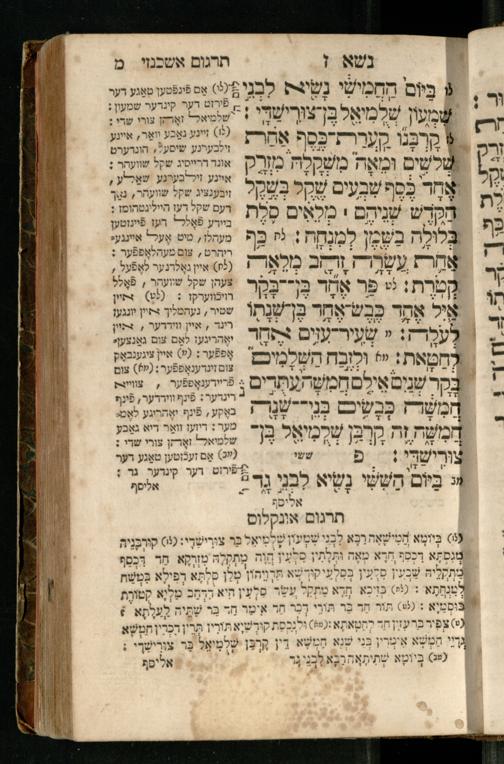 נשא ז
תרגום אשכנזי מ
לו בַּיּוֹם הַחֲמִישִׁי נָשִׂיא לִבְנֵי
שִׁמְעוֹן שְׁלֻמִיאֵל בֶּן־צוּרִישַׁדָּי :
לז קָרְבָּנוֹ קַעֲרַת־כֶּסֶף אַחַת
שְׁלֹשִׁים וּמֵאָה מִשְׁקָלָהּ מִזְרָק
אֶחָד כֶּסֶף שִׁבְעִים שֶׁקֶל בְּשֶׁקֶל
הַקֹּדֶשׁ שְׁנֵיהֶם ׀ מְלֵאִים סֹלֶת
בְּלוּלָה בַשֶּׁמֶן לְמִנְחָה : לח כַּף
אַחַת עֲשָׂרָה זָהָב מְלֵאָה
קְטֹרֶת : לט פַּר אֶחָד בֶּן־בָּקָר
אַיִל אֶחָד כֶּבֶשׂ־אֶחָד בֶּן־שְׁנָתוֹ
לְעֹלָה : מ שְׂעִיר־עִזִּים אֶחָד
לְחַטָּאת : מא וּלְזֶבַח הַשְּׁלָמִים
בָּקָר שְׁנַיִם אֵילִם חֲמִשָּׁה עַתֻּדִים
חֲמִשָּׁה כְּבָשִׂים בְּנֵי־שָׁנָה
חֲמִשָּׁה זֶה קָרְבַּן שְׁלֻמִיאֵל בֶּן־
צוּרִישַׁדָּי : פ ששי
מב בַּיּוֹם הַשִּׁשִּׁי נָשִׂיא לִבְנֵי גָד
אליסף
(לו) אם פֿינפֿטען טאגע דער
פֿירזט דער קינדער שמעון :
שלמיאל זאהן צורי שדי :
(לז) זיינע גאבע וואר, איינע
זילבערנע שיסעל, הונדערט
אונד דרייסיג שקל שוועהר :
איינע זילבערנע שאלע,
זיבענציג שקל שוועהר, נאך
דעם שקל דעז הייליגטהומז :
ביידע פֿאלל דעז פֿיינזטען
מעהלז, מיט אעל איינגע־
ריהרט, צום מעהלאפֿפֿער :
(לח) איין גאלדנער לאפֿעל,
צעהן שקל שוועהר, פֿאלל
רויכווערקז : (לט) איין
שטיר, נעהמליך איין יונגעז
רינד, איין ווידדער, איין
יאהריגעז לאם צום גאנצען
אפֿפֿער : (מ) איין ציגענבאק
צום זינדענאפֿפֿער : (מא) צום
פֿריידענאפֿפֿער, צווייא
רינדער : פֿינף ווידדער, פֿינף
באקע, פֿינף יאהריגע לאם־
מער : דיעז וואר דיא גאבע
שלמיאל זאהן צורי שדי :
(מב) אם זעכזטען טאגע דער
פֿירזט דער קינדער גד :
אליסף
תרגום אונקלוס
(לו) בְּיוֹמָא חֲמִישָׁאָה רַבָּא לִבְנֵי שִׁמְעוֹן שְׁלֻמִיאֵל בַּר צוּרִישַׁדָּי : (לז) קוּרְבָּנֵיהּ
מְגִסְתָּא דִכְסַף חֲדָא מְאָה וּתְלָתִין סִלְעִין הֲוָה מַתְקְלָהּ מִזְרְקָא חַד דִּכְסַף
מַתְקְלֵיהּ שַׁבְעִין סִלְעִין בְּסִלְעֵי קוּדְשָׁא תַּרְוֵיהוֹן מְלַן סֻלְתָּא דְפִילָא בִמְשַׁח
לְמִנְחָתָא : (לח) בְּזִיכָא חֲדָא מַתְקַל עֲשַׂר סִלְעִין הִיא דִדְהַב מַלְיָא קְטוֹרֶת
בּוּסְמַיָּא : (לט) תּוֹר חַד בַּר תּוֹרֵי דְּכַר חַד אִימַר חַד בַּר שַׁתֵּיהּ לַעֲלָתָא :
(מ) צְפִיר בַּר עִזִּין חַד לְחַטָּאתָא : (מא) וּלְנִכְסַת קוּדְשַׁיָּא תּוֹרִין תְּרֵין דִּכְרִין חַמְשָׁא
גְּדָיֵי חַמְשָׁא אִימְרִין בְּנֵי שְׁנָא חַמְשָׁא דֵּין קָרְבַּן שְׁלֻמִיאֵל בַּר צוּרִישַׁדָּי :
(מב) בְּיוֹמָא שְׁתִיתָאָה רַבָּא לִבְנֵי גָד אליסף